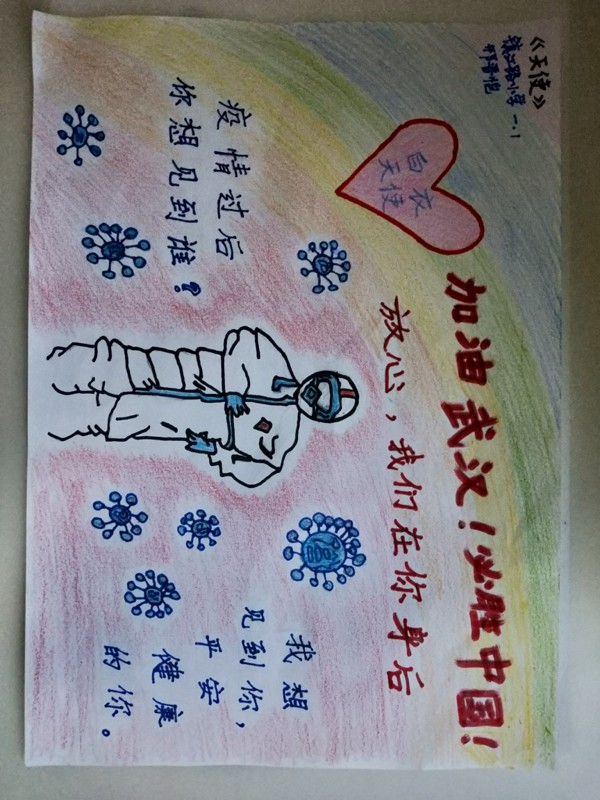 《天使》
镇江路小学 一.1
白衣
天使
加油武汉！必胜中国！
放心，我们在你身后
疫情过后
你想见到谁？
我想
见到你，
平安
健康
的你。